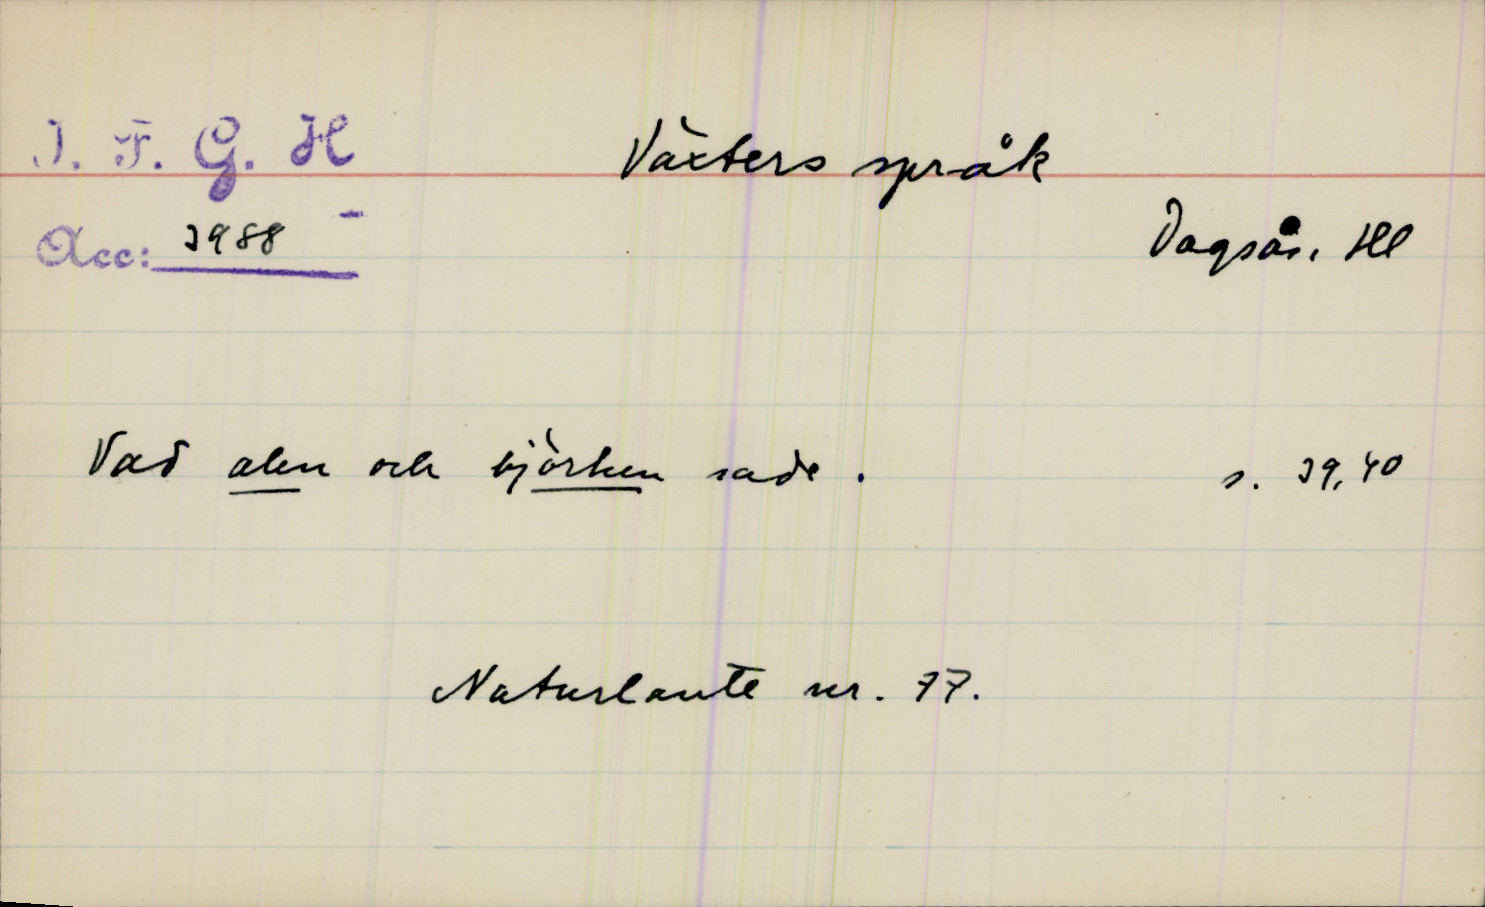 I. F. G. H
Växters språk
Acc: 3988
Dagsås. Hl
Vad alen och björken sade. s. 39, 40
Naturlaute nr. 77.